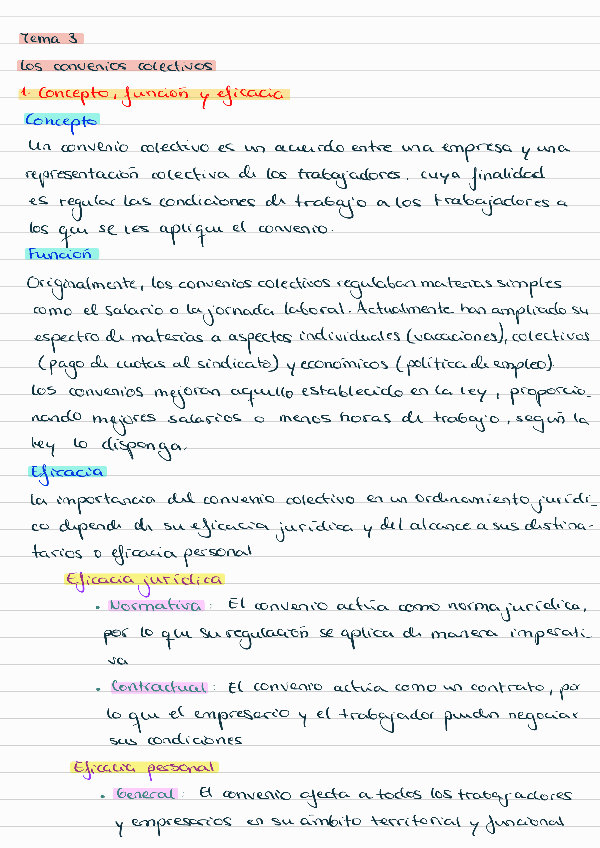 Tema 3
Los convenios colectivos
1. Concepto, función y eficacia
Concepto
Un convenio colectivo es un acuerdo entre una empresa y una
representación colectiva de los trabajadores, cuya finalidad
es regular las condiciones de trabajo a los trabajadores a
los que se les aplique el convenio.
Función
Originalmente, los convenios colectivos regulaban materias simples
como el salario o la jornada laboral. Actualmente han ampliado su
espectro de materias a aspectos individuales (vacaciones), colectivos
(pago de cuotas al sindicato) y económicos (política de empleo).
Los convenios mejoran aquello establecido en la ley, proporcio-
nando mejores salarios o menos horas de trabajo, según la
ley lo disponga.
Eficacia
La importancia del convenio colectivo en un ordenamiento jurídi-
co depende de su eficacia jurídica y del alcance a sus destina-
tarios o eficacia personal
Eficacia jurídica
• Normativa: El convenio actúa como norma jurídica,
por lo que su regulación se aplica de manera imperati-
va
• Contractual: El convenio actúa como un contrato, por
lo que el empresario y el trabajador pueden negociar
sus condiciones
Eficacia personal
• General: El convenio afecta a todos los trabajadores
y empresarios en su ámbito territorial y funcional